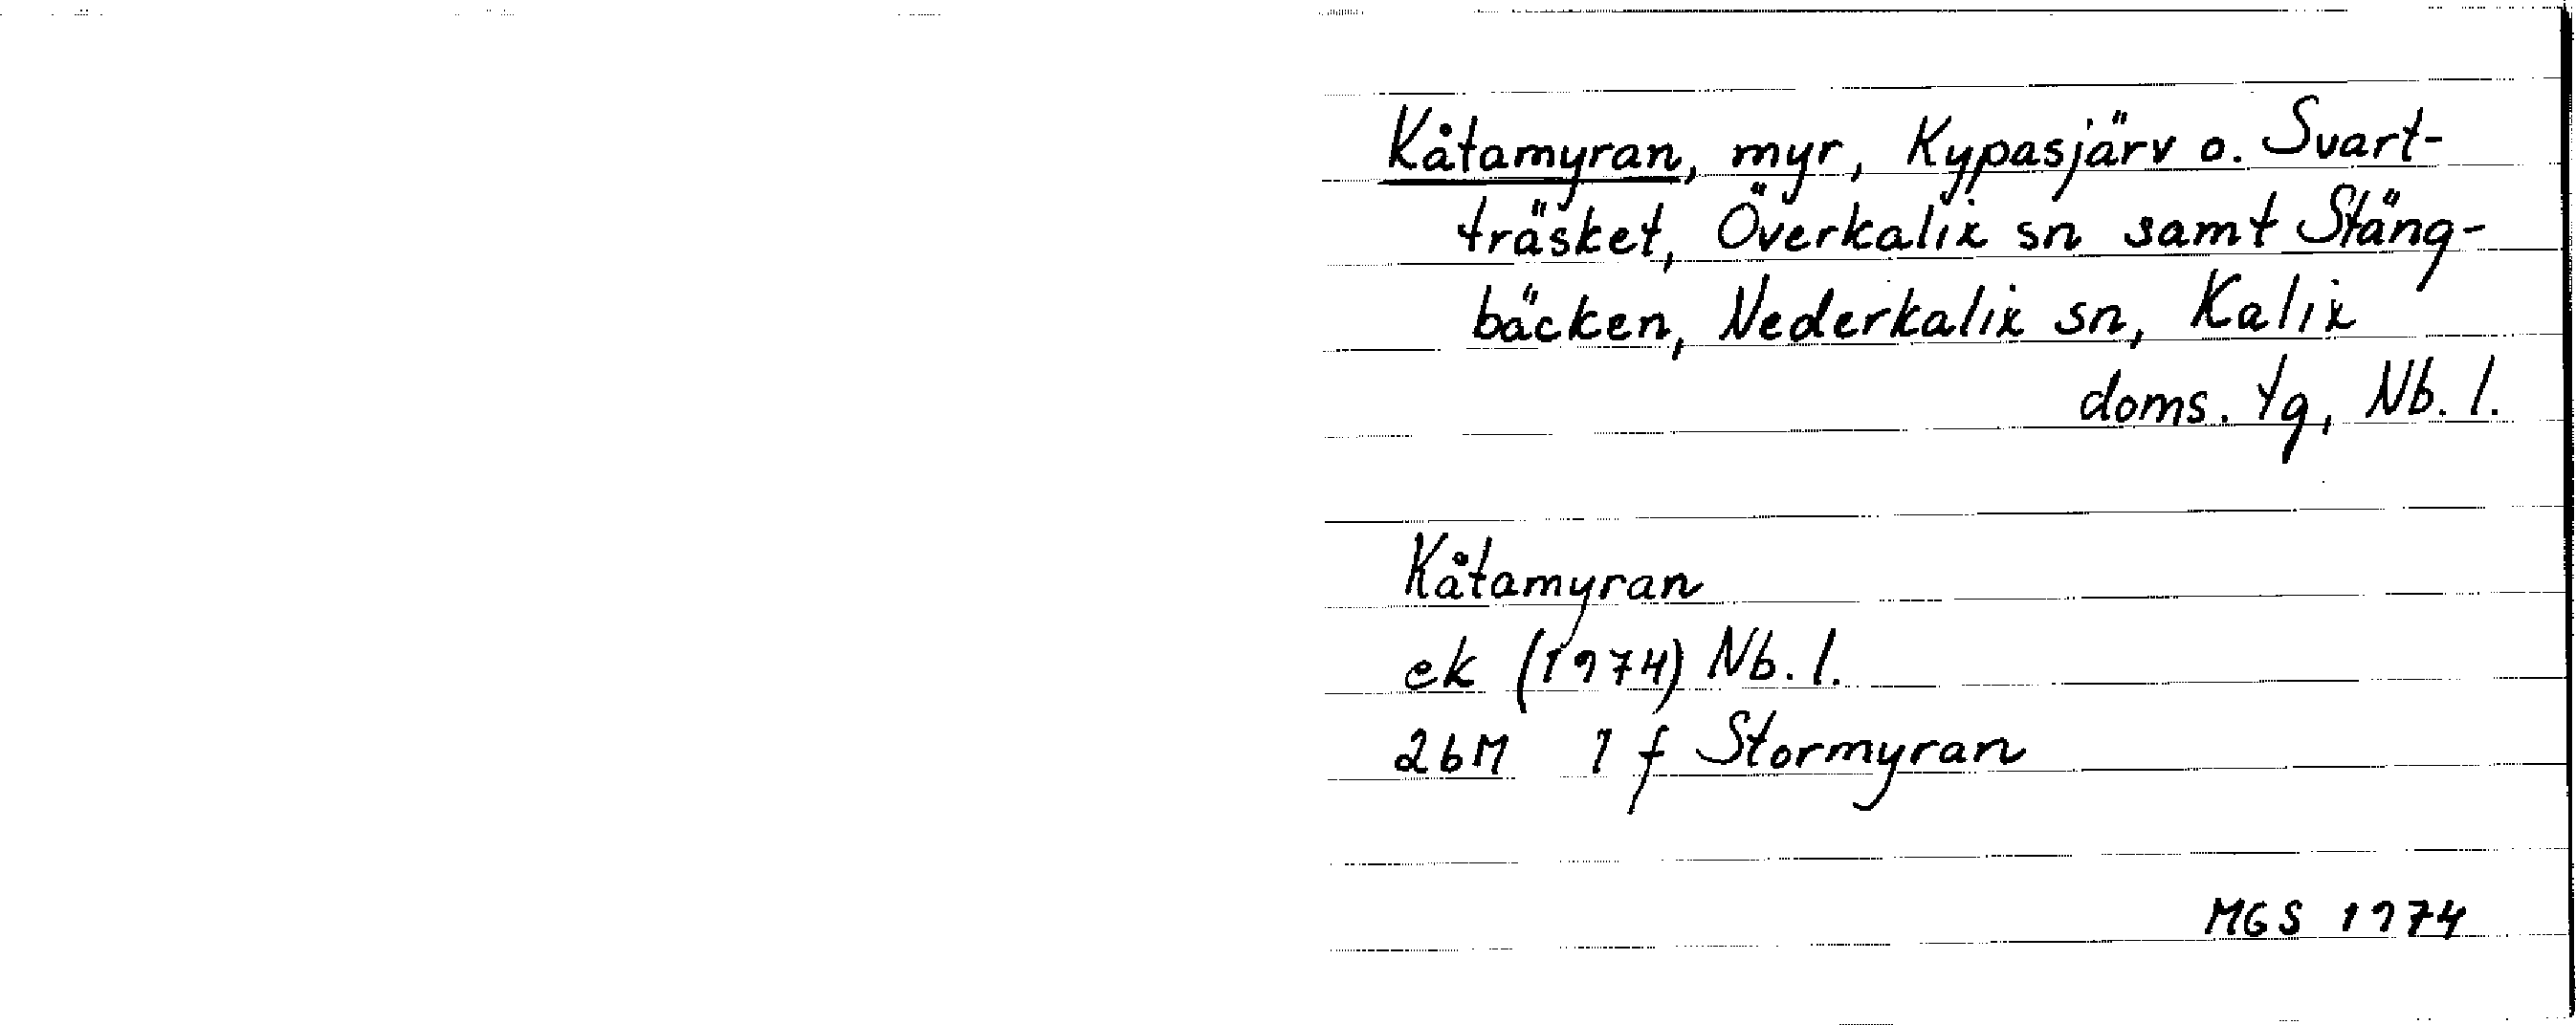 Kåtamyran, myr, Kypasjärv o. Svart-
träsket, Överkalix sn samt Stäng-
bäcken, Nederkalix sn, Kalix
doms. tg, Nb. l.
Kåtamyran
ek (1974) Nb. l.
26M 1 f Stormyran
MGS 1974